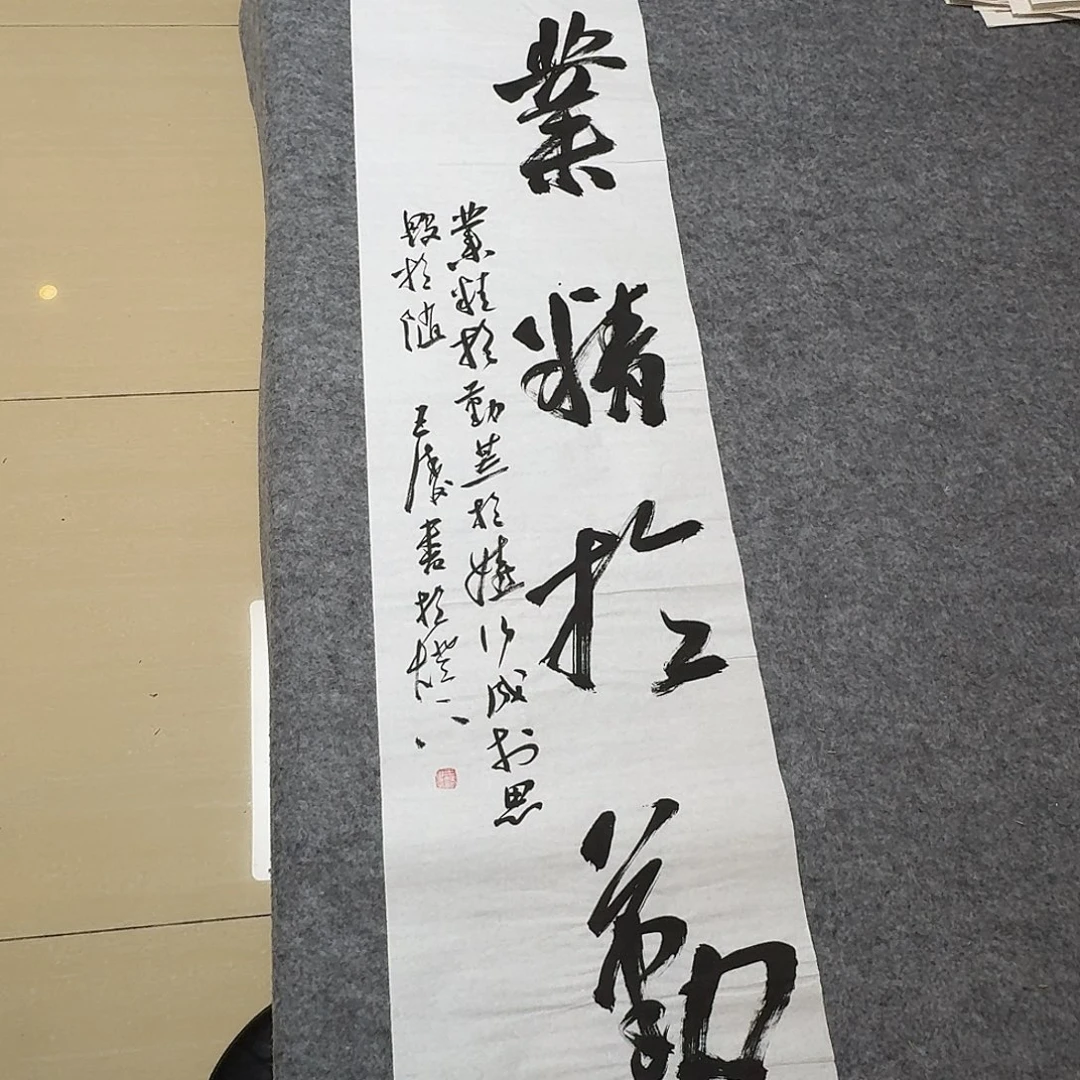 業精於勤
業精於勤荒於嬉行成於思
毀於隨
書於